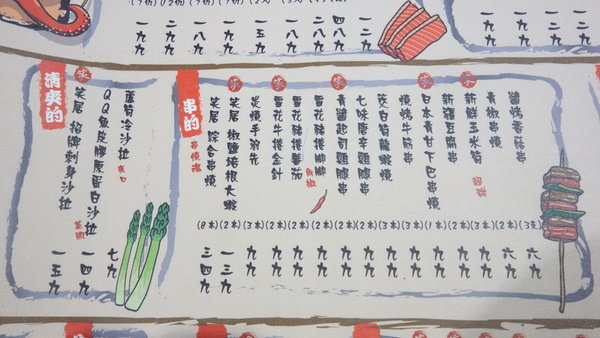 一九九
二九九
一八九
一九九
一五九
一八九
二八九
四八九
一二九
一九九
一九九
一二九
清爽的
笑尾 招牌刺身沙拉
一五九
QQ魚皮膠原蛋白沙拉
一四九
蘆筍冷沙拉
七九
串的
串燒魂
笑尾 綜合串燒
(8本)
三四九
笑尾 椒鹽培根大蝦
(2本)
一三九
炙燒手羽先
(3本)
九九
雪花牛捲金針
(2本)
九九
雪花豬捲番茄
(2本)
九九
雪花豬捲
(2本)
九九
青醬起司雞腿串
(2本)
九九
七味唐辛雞腿串
(2本)
九九
茭白筍
(2本)
九九
燒烤牛筋串
(3本)
九九
日本青甘下巴串燒
(1本)
九九
新疆豆腐串
(2本)
九九
新鮮玉米筍
(3本)
九九
青椒串燒
(2本)
六九
醬烤香菇串
六九